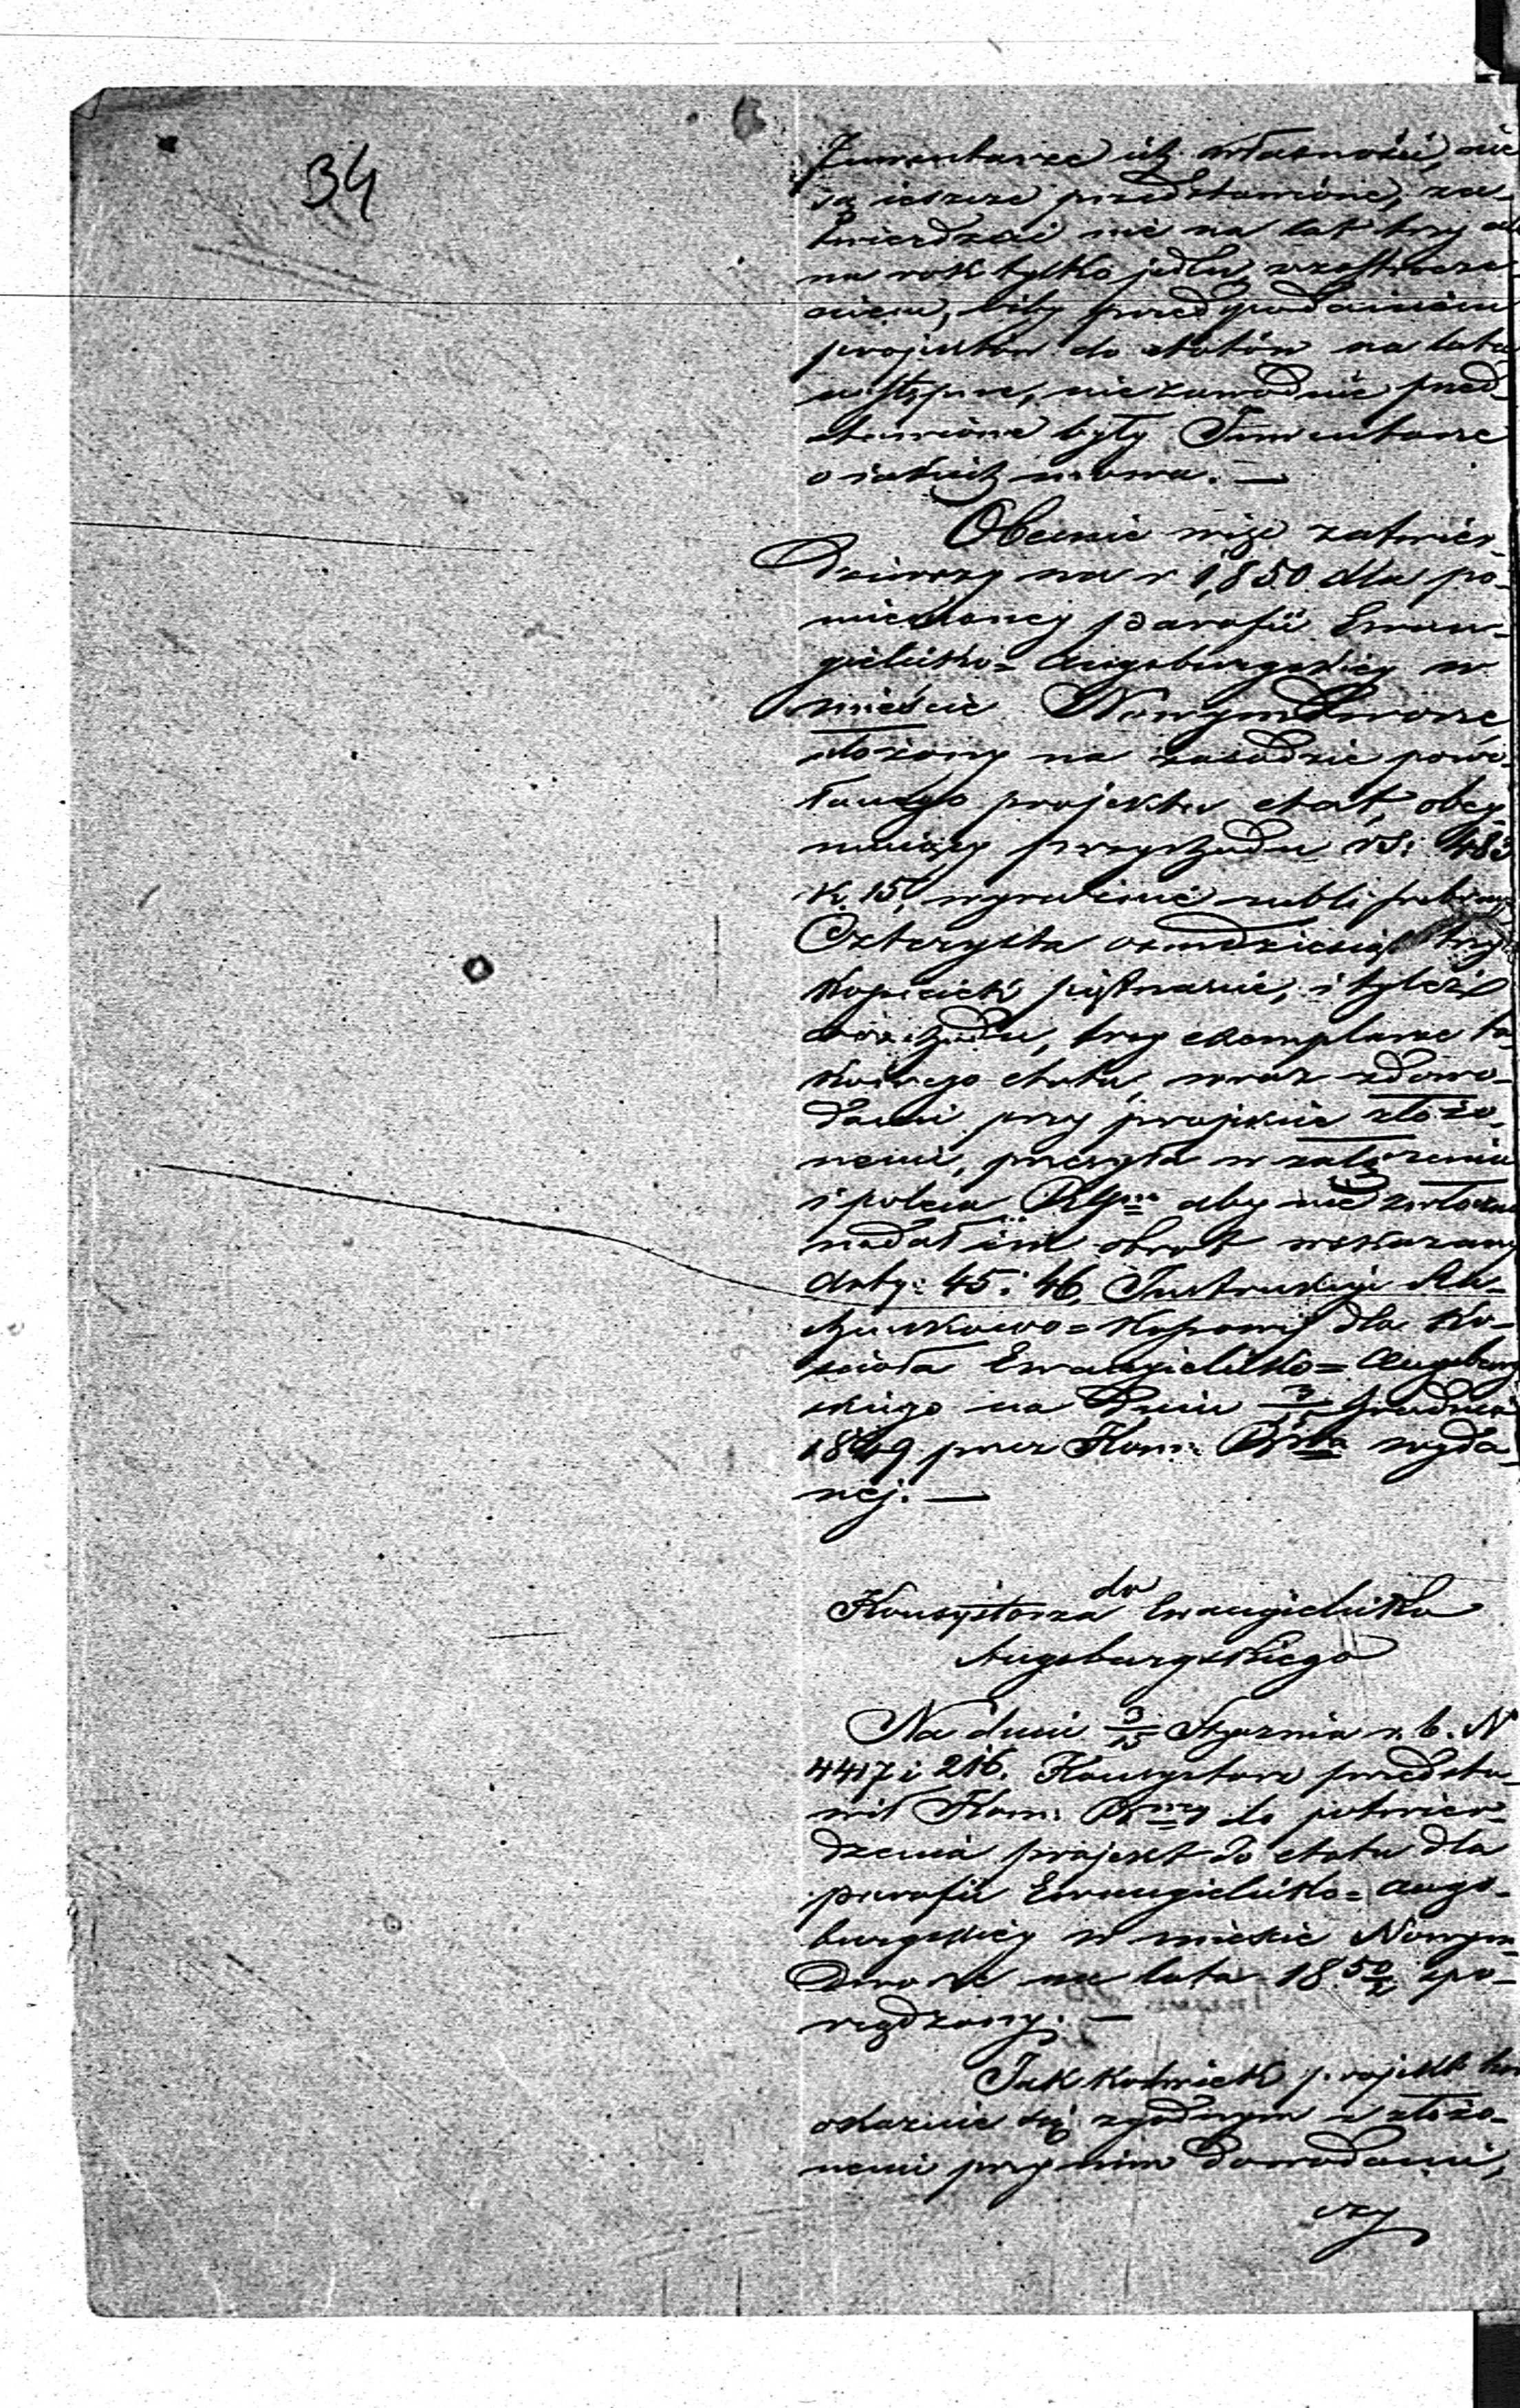 34
Inwentarze ich własności, nie
są ieszcze przedstawione, za-
twierdzać nie na lat trzy ale
na rok tylko jeden, z zastrzeże-
niem, iżby przed podaniem
projektów do etatów na lata
następne, niezawodnie przed-
stawione były Inwentarze
o iakich mowa. —
Obecnie więc zatwier-
dziwszy na r. 1850 dla po-
mienioney parafii Ewan-
gielicko = Augsburgskiey w
mieście Nowym Dworze,
ułożony na zasadzie powo-
łanego projektu etat, obey-
muiący przychodu rs: 483
k. 15, wyraźnie rubli srebrem
Czterysta osmdziesiąt trzy
kopieiek piętnaście, i tyleż
rozchodu, trzy exemplarze ta-
kowego etatu, wraz z dowo-
dami przy projekcie złożo-
nemi, przesyła w załączeniu
i poleca aby niezwłocznie
nadał im obrót wskazany
Arty: 45 i 46 Instrukcyi Ra-
chunkowo = Kassowey dla Ko-
ścioła Ewangielicko = Augsburg
skiego na dniu 3/15 Grudnia
1849 przez Kom: wyda-
nej. —
do
Konsystorza Ewangielicko
Augsburgskiego
Na dniu 3/15 Stycznia r. b. N
4417 i 216. Konsystorz przedsta-
wił Kom: do potwier-
dzenia projekt do etatu dla
parafii Ewangielicko = Augs-
burgskiey w mieście Nowym-
Dworze na lata 1850/2 spo-
rządzony. —
Jakkolwiek projekt ten
okazuie się zgodnym z złożo-
nemi przy nim dowodami,
czy